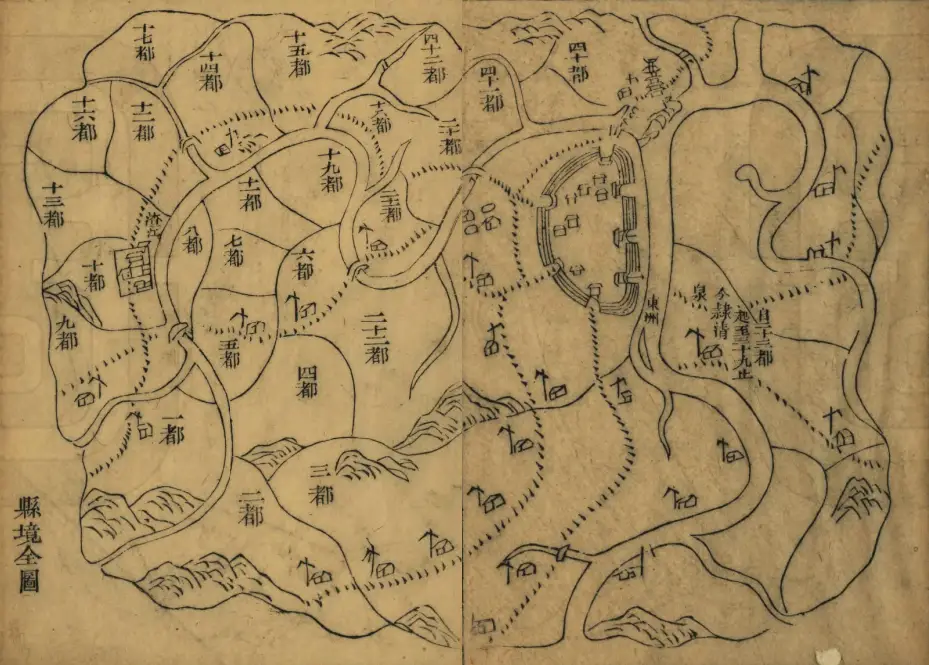 縣境全圖
十七都
十四都
十五都
四十二都
四十一都
四十都
十六都
十二都
十八都
二十都
十三都
十一都
十九都
二十一都
渣江
八都
七都
六都
十都
九都
五都
四都
二十二都
一都
二都
三都
東洲
自二十三都
起至三十九止
今隸清
泉